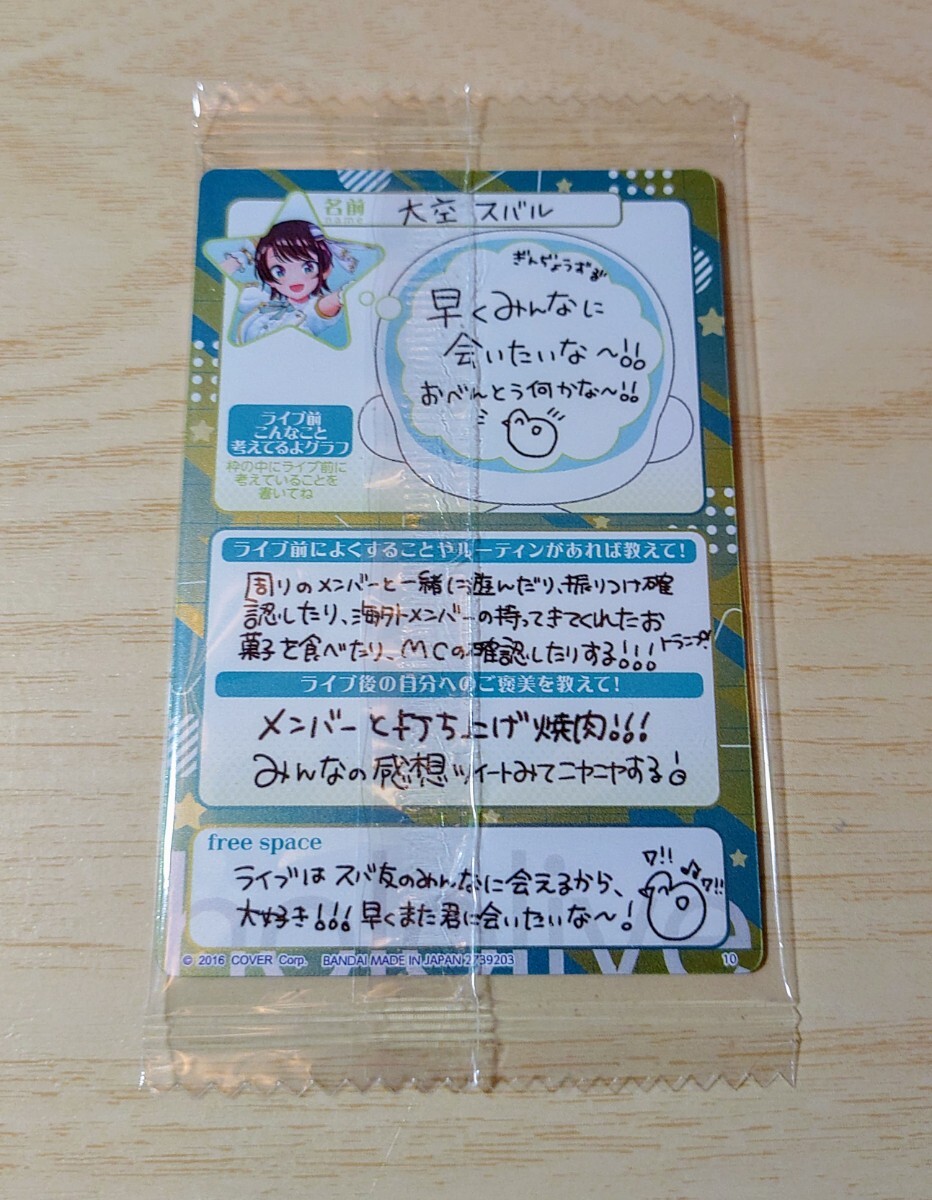 名前
name
大空 スバル
ぎんぢょうずる
早くみんなに
会いたいな〜!!
おべんとう何かな〜!!
ライブ前
こんなこと
考えてるよグラフ
枠の中にライブ前に
考えていることを
書いてね
ライブ前によくすることやルーティンがあれば教えて!
周りのメンバーと一緒に遊んだり、振りつけ確
認したり、海外メンバーの持ってきてくれたお
菓子を食べたり、MCの確認したりする!!!
トランプ!
ライブ後の自分へのご褒美を教えて!
メンバーと打ち上げ焼肉!!!
みんなの感想ツイートみてニヤニヤする!
free space
ライブはスバ友のみんなに会えるから、
大好き!!!早くまた君に会いたいな〜!
ワ!!
♪ワ!!
hololive
© 2016 COVER Corp. BANDAI MADE IN JAPAN 2739203
10